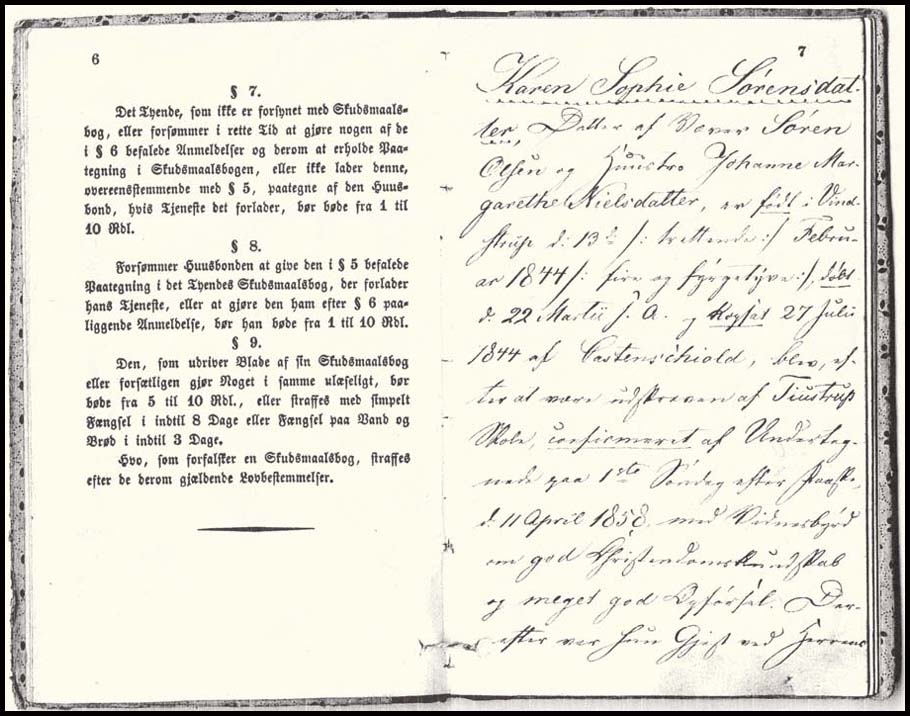 6
§ 7.
Det Tyende, som ikke er forsynet med Skudsmaals-
bog, eller forsømmer i rette Tid at gjøre nogen af de
i § 6 befalede Anmeldelser og derom at erholde Paa-
tegning i Skudsmaalsbogen, eller ikke lader denne,
overeensstemmende med § 5, paategne af den Huus-
bond, hvis Tjeneste det forlader, bør bøde fra 1 til
10 Rbl.
§ 8.
Forsømmer Huusbonden at give den i § 5 befalede
Paategning i det Tyendes Skudsmaalsbog, der forlader
hans Tjeneste, eller at gjøre den ham efter § 6 paa-
liggende Anmeldelse, bør han bøde fra 1 til 10 Rbl.
§ 9.
Den, som udriver Blade af sin Skudsmaalsbog
eller forsætligen gjør Noget i samme ulæseligt, bør
bøde fra 5 til 10 Rbl., eller straffes med simpelt
Fængsel i indtil 8 Dage eller Fængsel paa Vand og
Brød i indtil 3 Dage.
Hvo, som forfalsker en Skudsmaalsbog, straffes
efter de derom gjældende Lovbestemmelser.
7
Karen Sophie Sørensdat-
ter, Datter af Væver Søren
Olsen og Huustro Johanne Mar-
garethe Nielsdatter, er født i Vind-
strup d: 13de /: trettende :/ Febru-
ar 1844 /: fire og fyrgetyve :/, døbt
d. 22 Martii s. A. og 27 Julii
1844 af Castenschiold, blev, ef-
ter at være udskreven af Tiustrup
Skole, confirmeret af Underteg-
nede paa 1ste Søndag efter Paaske,
d. 11 April 1858, med Vidnesbyrd
om god Christendomskundskab
og meget god Opførsel. Der-
efter var hun Gjest ved Herrens